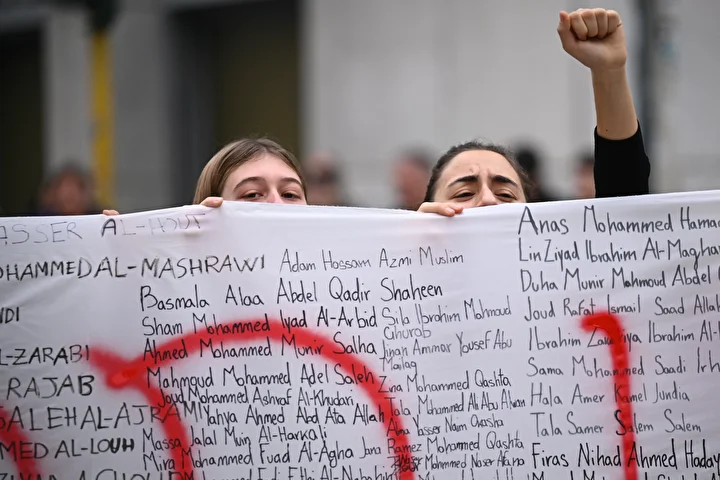 ASSER AL-HOUT
MOHAMMED AL-MASHRAWI
L-ZARABI
RAJAB
SALEH AL-AJRAMI
MED AL-LOUH
Adam Hossam Azmi Muslim
Basmala Alaa Abdel Qadir Shaheen
Sham Mohammed Iyad Al-Arbid
Ahmed Mohammed Munir Salha
Mahmoud Mohammed Adel Saleh
Joud Mohammed Ashraf Al-Khudari
Yahya Ahmed Abd Ata Allah
Massa Jalal Muin Al-Harkali
Mira Mohammed Fuad Al-Agha
Jana
Sila Ibrahim Mahmoud
Ghurab
Ammar Yousef Abu
Mohammed Qashta
Tala Mohammed Ali Abu
Yasser Naim Okasha
Ramez Mohammed Qashta
Mohammed Naser
Anas Mohammed Hama
Lin Ziyad Ibrahim Al-Magha
Duha Munir Mahmoud Abdel
Joud Rafat Ismail Saad Allah
Ibrahim Zakariya Ibrahim Al-
Sama Mohammed Saadi
Hala Amer Kamel Jundia
Tala Samer Salem Salem
Firas Nihad Ahmed Haday